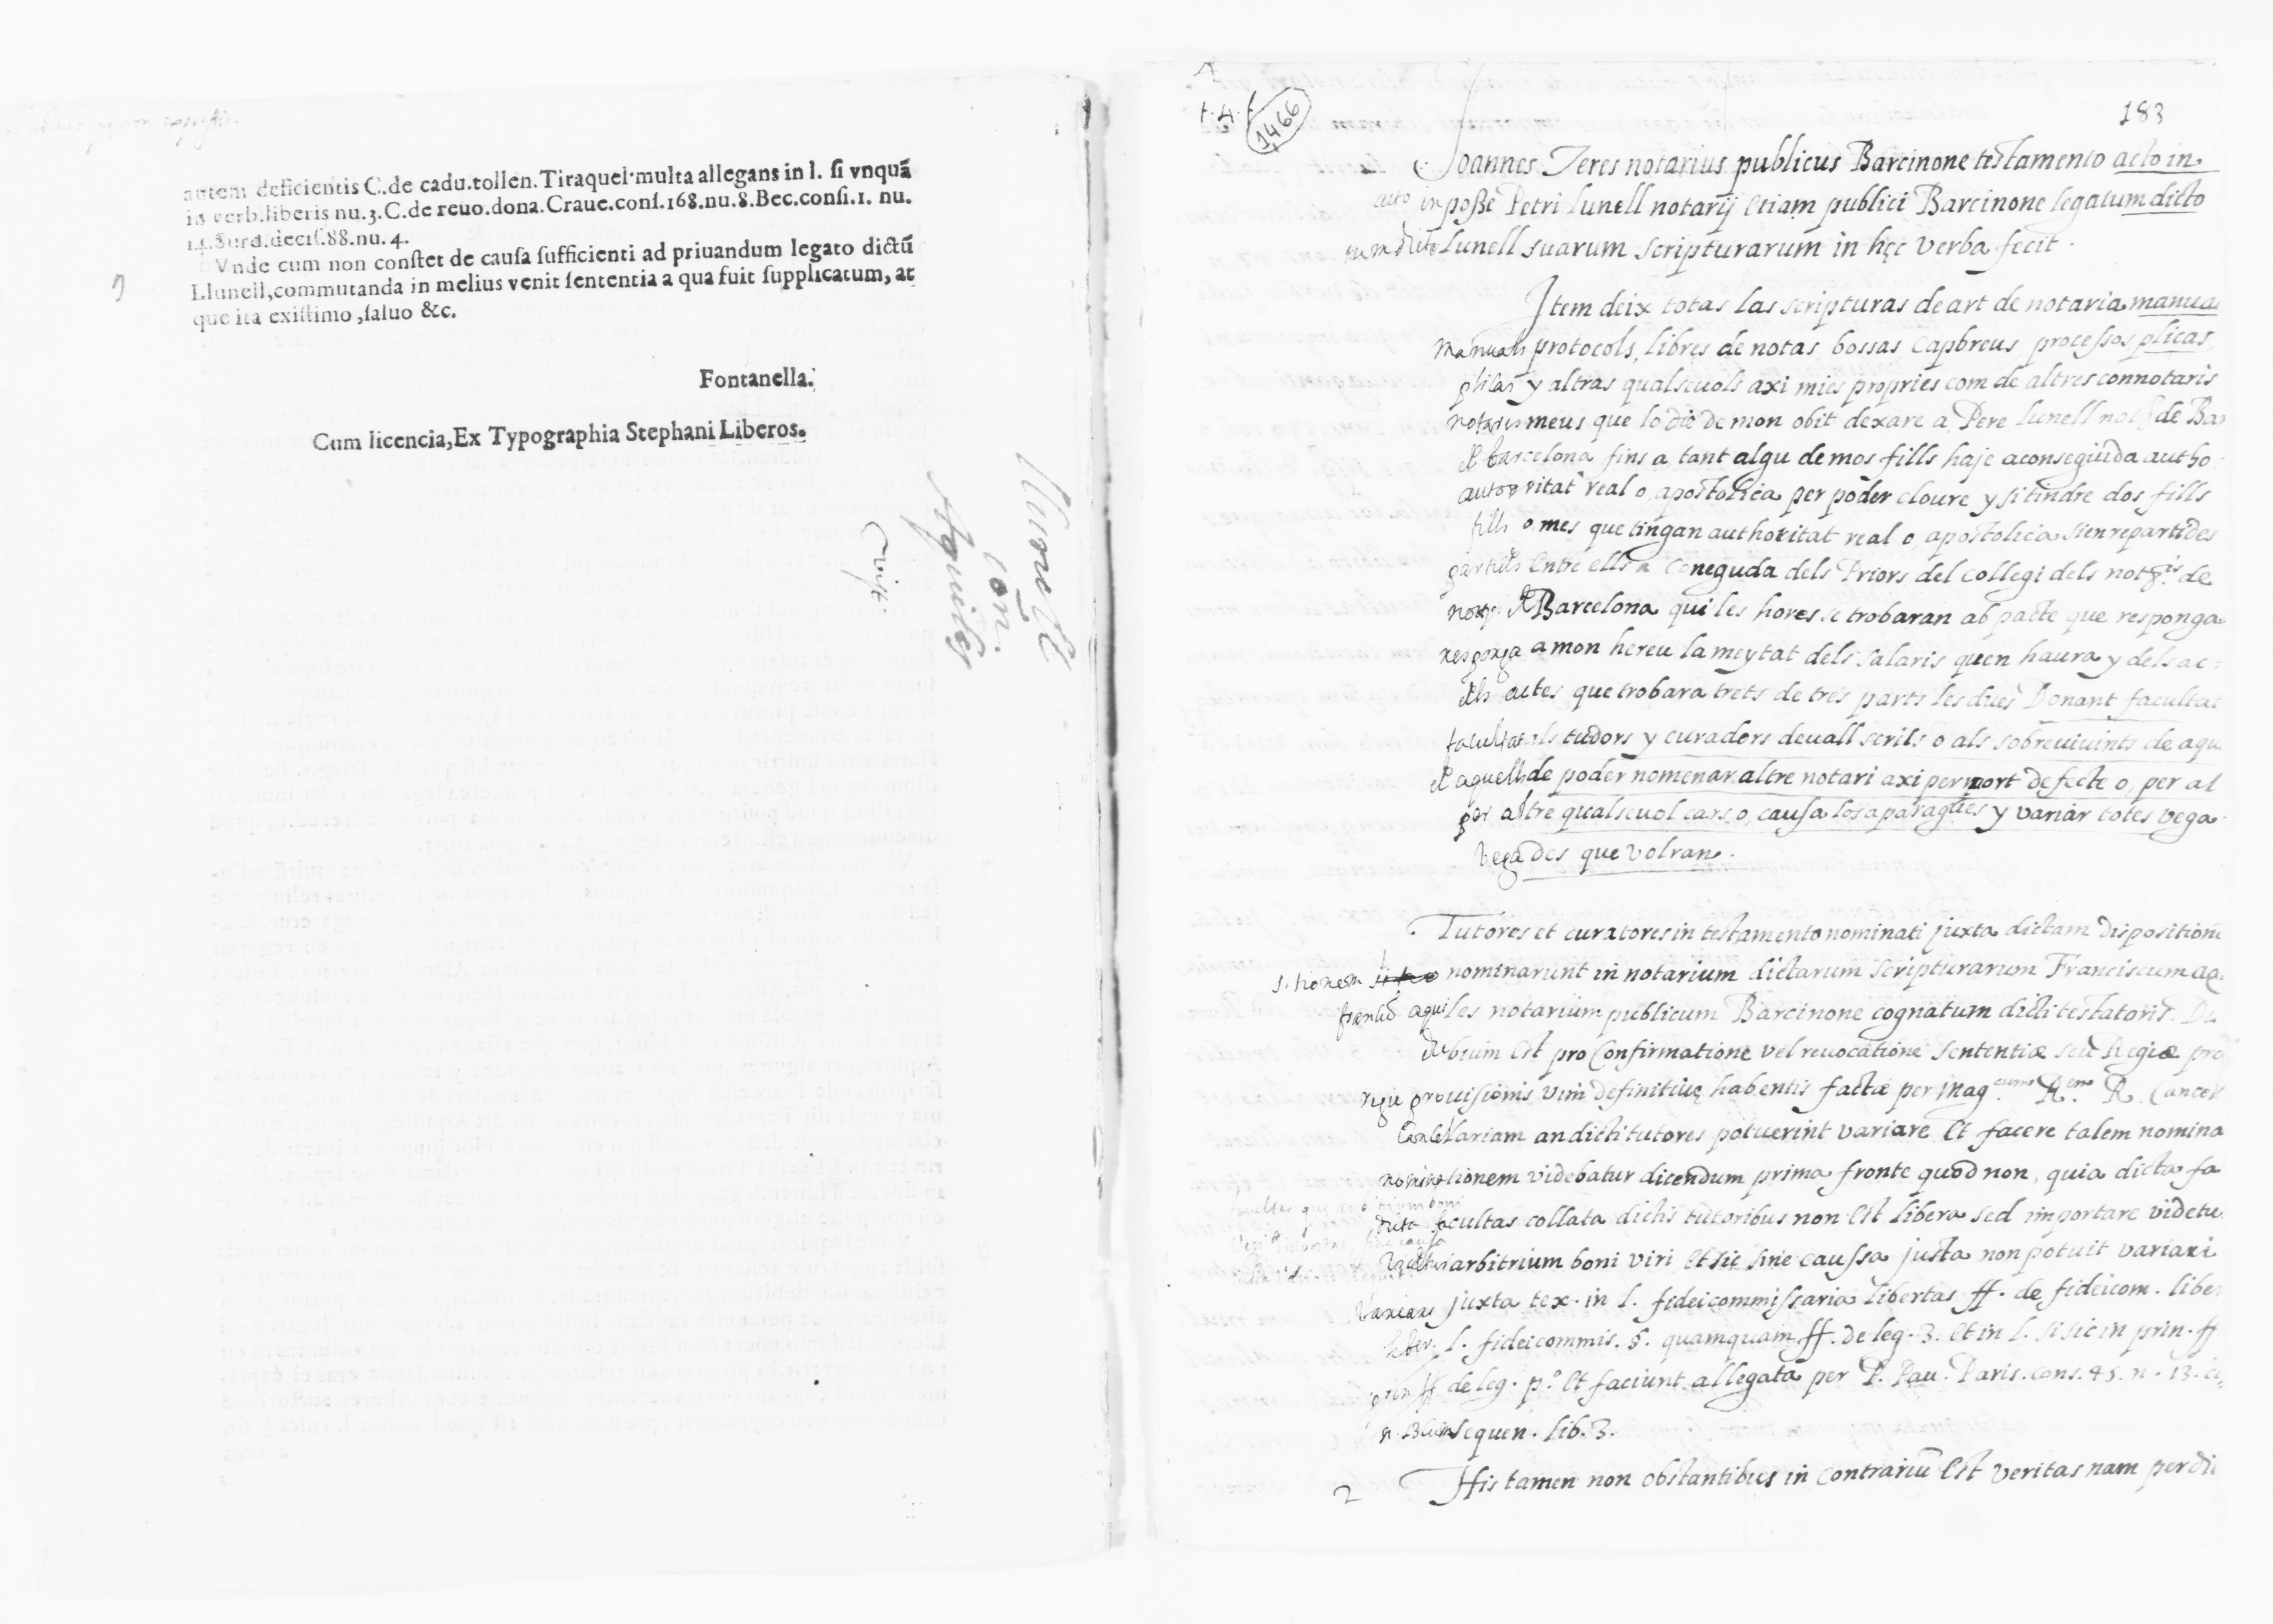 autem deficientis C.de cadu.tollen.Tiraquel.multa allegans in l. si vnquã
in verb.liberis nu.3.C.de reuo.dona.Craue.cons.168.nu.8.Bec.consi.1. nu.
14.Surd.decis.88.nu.4.
Vnde cum non constet de causa sufficienti ad priuandum legato dictũ
Llunell,commutanda in melius venit sententia a qua fuit supplicatum, at
que ita existimo ,saluo &c.
Fontanella.
Cum licencia,Ex Typographia Stephani Liberos.
Llunell
con.
Aquiles
1466
183
Joannes Teres notarius publicus Barcinone testamento acto in
acto in posse Petri lunell notarij etiam publici Barcinone legatum dicto
tum dicto lunell suarum scripturarum in hęc verba fecit.
Item deix totas las scripturas de art de notaria manua
manuals protocols, libres de notas bossas Capbreus processos plicas,
plicas y altras qualseuols axi mies propries com de altres connotaris
notaris meus que lo die de mon obit dexare a Pere lunell not de Bar
de barcelona fins a tant algu de mos fills haje aconseguida autho
autoritat real o apostolica per poder cloure y si tindre dos fills
fills o mes que tingan authoritat real o apostolica sien repartides
partides entre ells a Coneguda dels Priors del Collegi dels not.ris de
not. de Barcelona qui les hores se trobaran ab pacte que responga
responga a mon hereu la meytat dels salaris quen haura y dels ac=
dels actes que trobara trets de tres parts les dues Donant facultat
facultat als tudors y curadors deuall scrits o als sobreuiuints de aqu
de aquells de poder nomenar altre notari axi per mort defecte o, per al
per altre qualseuol cars o, causa los aparagues y variar totes vega
vegades que volran.
Tutores et curatores in testamento nominati juxta dictam dispositione
sitionem nominarunt in notarium dictarum scripturarum Franciscum aq
aquiles notarium publicum Barcinone cognatum dicti testatoris. Du
dubium est pro Confirmatione vel reuocatione sententiæ seu Regiæ pro
regie prouisionis vim definitiuę habentis factæ per mag.cum R.em R. Cancel
Cancellariam an dicti tutores potuerint variare et facere talem nomina
nominationem videbatur dicendum prima fronte quod non, quia dicta fa
dicta facultas collata dictis tutoribus non est libera sed importare videtu
videtur arbitrium boni viri et sic sine caussa justa non potuit variari
variari juxta tex. in l. fideicommissaria libertas ff. de fideicom. liber
liber. l. fideicommis. §. quamquam ff. de leg. 3. et in l. si sic in prin. ff
prin ff de leg. p.º et faciunt allegata per P. Pau. Paris. cons. 45. n. 13. cũ
n. 13 cum sequen. lib. 3.
2 His tamen non obstantibus in contrariũ est veritas nam per di